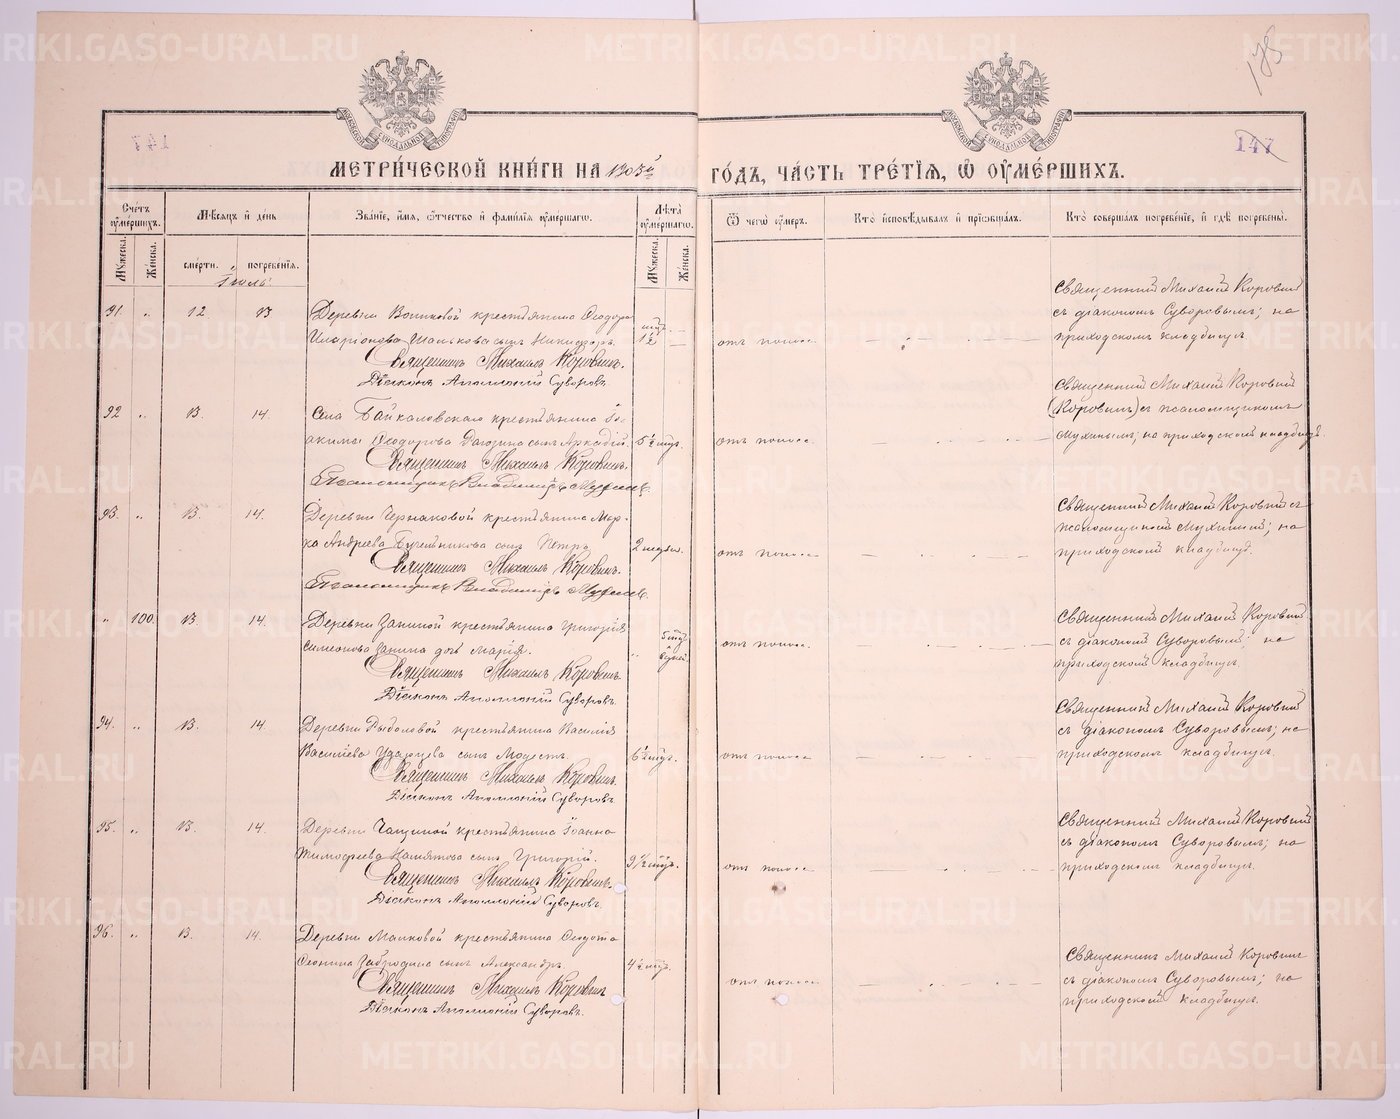 175
147
МЕТРИ́ЧЕСКОЙ КНИ́ГИ НА 1903й ГО́ДЪ, ЧА́СТЬ ТРЕ́ТІѦ, Ѡ҆ ОУ҆МЕ́РШИХЪ.
Сче́тъ оу҆ме́ршихъ.
Мꙋжеска. Же́нска.
Мѣ́сѧцъ и҆ де́нь
сме́рти. погребе́нїѧ.
Зва́нїе, и҆́мѧ, ѻ҆́тчество и҆ фами́лїѧ оу҆ме́ршагѡ.
Лѣ́та оу҆ме́ршагѡ.
Мꙋжеска. Же́нска.
Ѿ чегѡ̀ оу҆́меръ.
Кто̀ и҆сповѣ́дывалъ и҆ прїѡбща́лъ.
Кто̀ соверша́лъ погребе́нїе, и҆ гдѣ̀ погребены̀.
Іюль
91. " 12 13
Деревни Воинковой крестьянина Ѳеодора
Иларіонова сынъ Никифоръ.
Священникъ Михаилъ Коровинъ.
Діаконъ Аполлоній Суворовъ
1½
отъ поноса
Священникъ Михаилъ Коровинъ
съ діакономъ Суворовымъ; на
приходскомъ кладбищѣ
92 " 13. 14.
Села Байкаловскаго крестьянина Іо-
акима Ѳеодорова сынъ Аркадій.
Священникъ Михаилъ Коровинъ.
Псаломщикъ Владиміръ Мухинъ.
5½ мѣс.
отъ поноса
Священникъ Михаилъ Коровинъ
(Коровинъ) съ псаломщикомъ
Мухинымъ; на приходскомъ кладбищѣ.
93. " 13. 14.
Деревни Чернаковой крестьянина Мар-
ка Андреева сынъ Петръ.
Священникъ Михаилъ Коровинъ.
Псаломщикъ Владиміръ Мухинъ.
2 недѣл.
отъ поноса
Священникъ Михаилъ Коровинъ съ
псаломщикомъ Мухинымъ; на
приходскомъ кладбищѣ.
" 100. 13. 14.
Деревни Заниной крестьянина Григорія
Симеонова Занина дочь Марія.
Священникъ Михаилъ Коровинъ
Діаконъ Аполлоній Суворовъ.
отъ поноса
Священникъ Михаилъ Коровинъ
съ діакономъ Суворовымъ; на
приходскомъ кладбищѣ
94. " 13. 14.
Деревни Рыболовой крестьянина Василія
Васильева Ударцева сынъ Модестъ.
Священникъ Михаилъ Коровинъ.
Діаконъ Аполлоній Суворовъ
6½ мѣс.
отъ поноса
Священникъ Михаилъ Коровинъ
съ діакономъ Суворовымъ; на
приходскомъ кладбищѣ.
95. " 13. 14.
Деревни Чащиной крестьянина Іоанна
Тимофеева сынъ Григорій.
Священникъ Михаилъ Коровинъ.
Діаконъ Аполлоній Суворовъ.
9½ мѣс.
отъ поноса
Священникъ Михаилъ Коровинъ
съ діакономъ Суворовымъ; на
приходскомъ кладбищѣ.
96. " 13. 14.
Деревни Малковой крестьянина Ѳедота
Заводина сынъ Александръ
Священникъ Михаилъ Коровинъ
Діаконъ Аполлоній Суворовъ.
4½ мѣс.
отъ поноса
Священникъ Михаилъ Коровинъ
съ діакономъ Суворовымъ; на
приходскомъ кладбищѣ.
METRIKI.GASO-URAL.RU